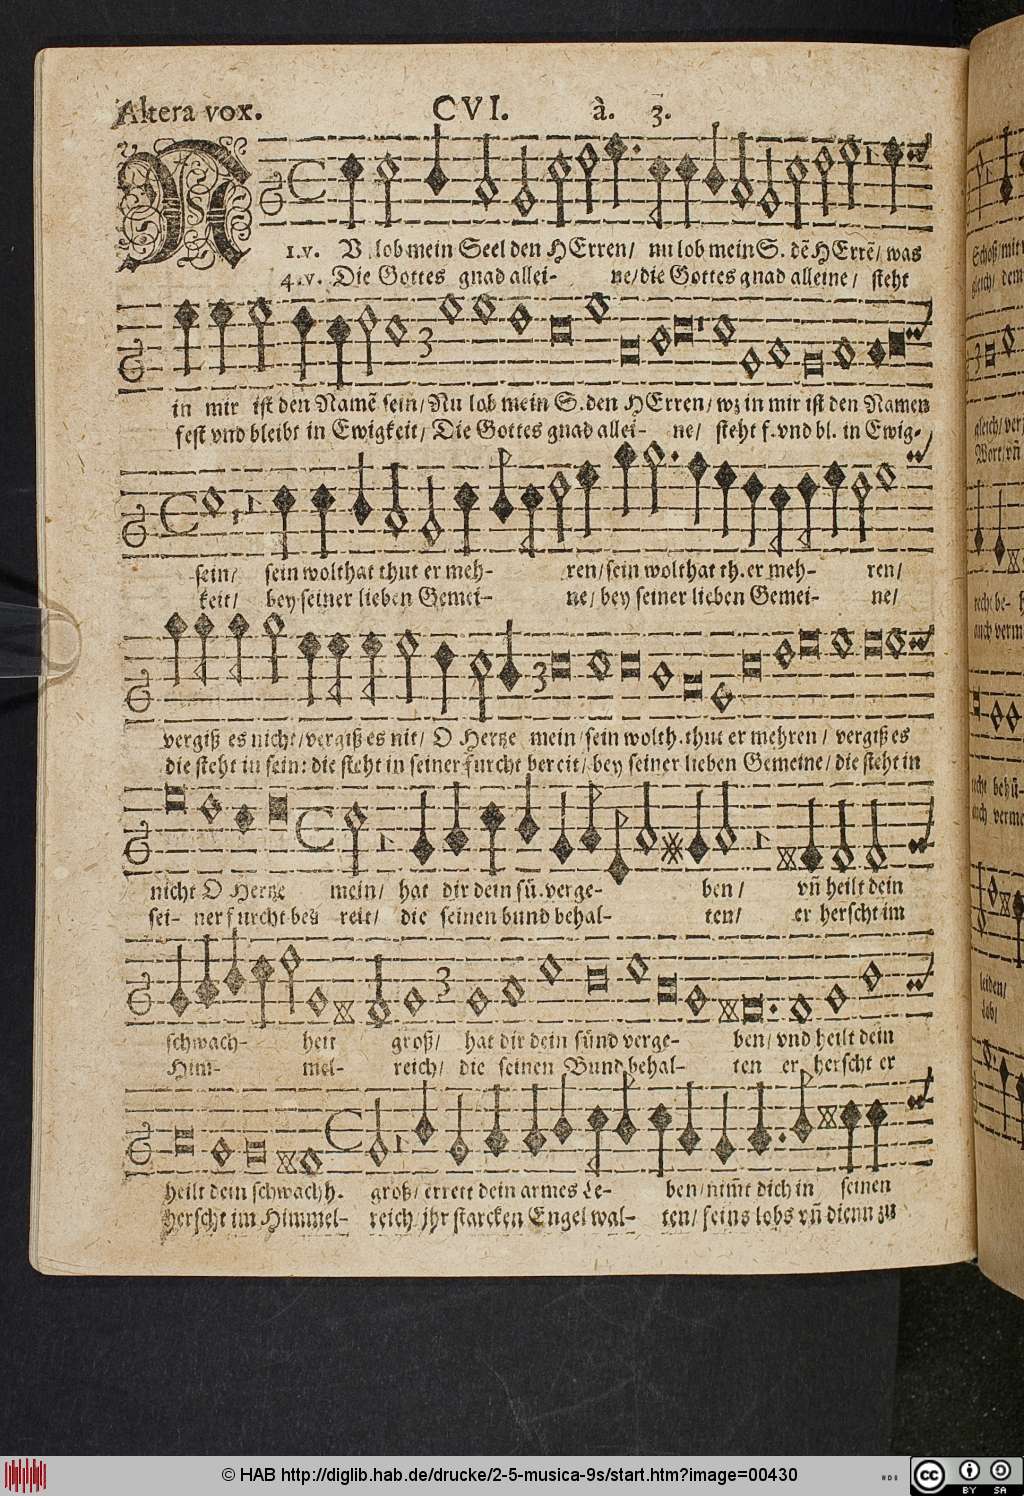 Altera vox. CVI. à. 3.
1.v. NV lob mein Seel den HErren/ nu lob mein S. dẽ HErrẽ/ was
4.v. Die Gottes gnad allei- ne/die Gottes gnad alleine/ steht
in mir ist den Namẽ sein/Nu lob mein S.den HErren/wz in mir ist den Namen
fest vnd bleibt in Ewigkeit/ Die Gottes gnad allei- ne/ steht f.vnd bl. in Ewig-
sein/ sein wolthat thut er meh- ren/sein wolthat th.er meh- ren/
keit/ bey seiner lieben Gemei- ne/ bey seiner lieben Gemei- ne/
vergiß es nicht/vergiß es nit/ O Hertze mein/sein wolth.thut er mehren/ vergiß es
die steht in sein: die steht in seiner furcht bereit/bey seiner lieben Gemeine/die steht in
nicht O Hertze mein/ hat dir dein sü.verge- ben/ vñ heilt dein
sei- ner furcht be- reit/ die seinen bund behal- ten/ er herscht im
schwach- heit groß/ hat dir dein sünd verge- ben/vnd heilt dein
Him- mel- reich/ die seinen Bund behal- ten er herscht er
heilt dein schwachh. groß/errett dein armes Le- ben/nim̃t dich in seinen
herscht im Himmel- reich/jhr starcken Engel wal- ten/seins lobs vñ dienn zu
© HAB http://diglib.hab.de/drucke/2-5-musica-9s/start.htm?image=00430
cc BY SA